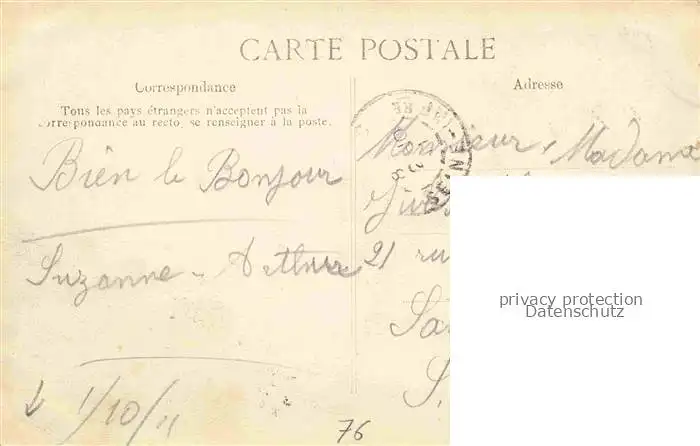 CARTE POSTALE
Correspondance
Tous les pays étrangers n'acceptent pas la
correspondance au recto, se renseigner à la poste.
Bien le Bonjour
Suzanne - Arthur
1/10/11
76
Adresse
Monsieur, Madame
21 ru
Sa
S.
privacy protection
Datenschutz